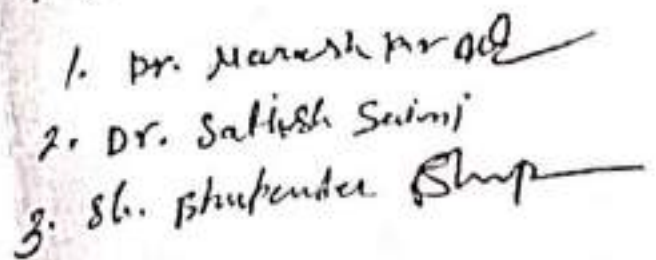 1. Dr. Naresh
2. Dr. Satish Saini
3. Sh. Bhupender Bhup